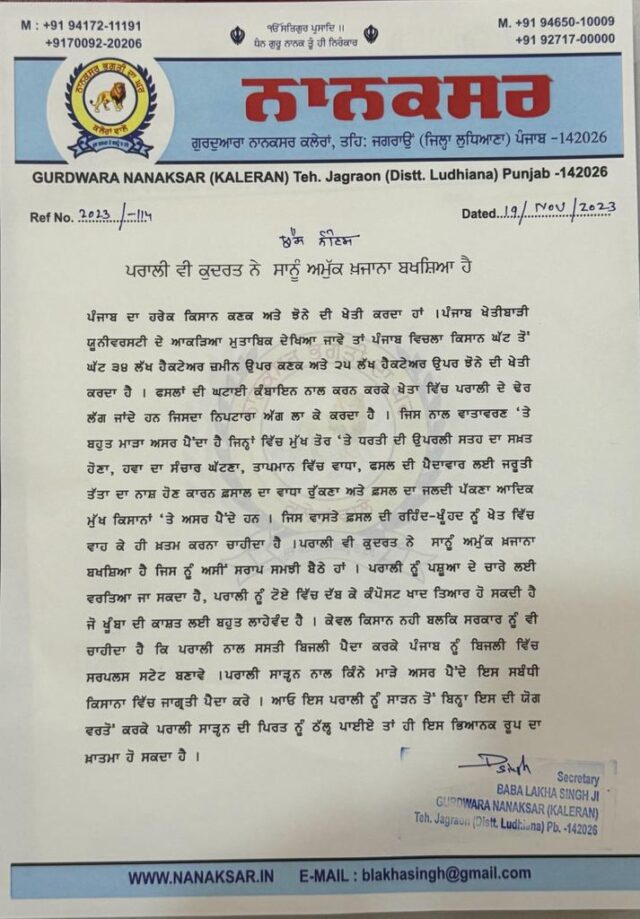 M : +91 94172-11191
+9170092-20206
ੴ ਸਤਿਗੁਰ ਪ੍ਰਸਾਦਿ ॥
ਧੰਨ ਗੁਰੂ ਨਾਨਕ ਤੂੰ ਹੀ ਨਿਰੰਕਾਰ
M. +91 94650-10009
+91 92717-00000
ਨਾਨਕਸਰ ਭਗਤੀ ਦਾ ਘਰ
ਕਲੇਰਾਂ ਵਾਲੇ
ਨਾਨਕਸਰ
ਗੁਰਦੁਆਰਾ ਨਾਨਕਸਰ ਕਲੇਰਾਂ, ਤਹਿ: ਜਗਰਾਉਂ (ਜਿਲ੍ਹਾ ਲੁਧਿਆਣਾ) ਪੰਜਾਬ -142026
GURDWARA NANAKSAR (KALERAN) Teh. Jagraon (Distt. Ludhiana) Punjab -142026
Ref No. 2023/-114
Dated..19/ NOV /2023
ਪ੍ਰੈਸ ਨੋਟਿਸ
ਪਰਾਲੀ ਵੀ ਕੁਦਰਤ ਨੇ ਸਾਨੂੰ ਅਮੁੱਕ ਖ਼ਜਾਨਾ ਬਖਸ਼ਿਆ ਹੈ
ਪੰਜਾਬ ਦਾ ਹਰੇਕ ਕਿਸਾਨ ਕਣਕ ਅਤੇ ਝੋਨੇ ਦੀ ਖੇਤੀ ਕਰਦਾ ਹਾਂ ।ਪੰਜਾਬ ਖੇਤੀਬਾੜੀ
ਯੂਨੀਵਰਸਟੀ ਦੇ ਆਕੜਿਆ ਮੁਤਾਬਿਕ ਦੇਖਿਆ ਜਾਵੇ ਤਾਂ ਪੰਜਾਬ ਵਿਚਲਾ ਕਿਸਾਨ ਘੱਟ ਤੋਂ
ਘੱਟ ੩੪ ਲੱਖ ਹੈਕਟੇਅਰ ਜ਼ਮੀਨ ਉਪਰ ਕਣਕ ਅਤੇ ੨੫ ਲੱਖ ਹੈਕਟੇਅਰ ਉਪਰ ਝੋਨੇ ਦੀ ਖੇਤੀ
ਕਰਦਾ ਹੈ । ਫਸਲਾਂ ਦੀ ਘਟਾਈ ਕੰਬਾਇਨ ਨਾਲ ਕਰਨ ਕਰਕੇ ਖੇਤਾ ਵਿੱਚ ਪਰਾਲੀ ਦੇ ਢੇਰ
ਲੱਗ ਜਾਂਦੇ ਹਨ ਜਿਸਦਾ ਨਿਪਟਾਰਾ ਅੱਗ ਲਾ ਕੇ ਕਰਦਾ ਹੈ । ਜਿਸ ਨਾਲ ਵਾਤਾਵਰਣ ‘ਤੇ
ਬਹੁਤ ਮਾੜਾ ਅਸਰ ਪੈਂਦਾ ਹੈ ਜਿਨ੍ਹਾਂ ਵਿੱਚ ਮੁੱਖ ਤੋਰ ‘ਤੇ ਧਰਤੀ ਦੀ ਉਪਰਲੀ ਸਤਹ ਦਾ ਸਖ਼ਤ
ਹੋਣਾ, ਹਵਾ ਦਾ ਸੰਚਾਰ ਘੱਟਣਾ, ਤਾਪਮਾਨ ਵਿੱਚ ਵਾਧਾ, ਫਸਲ ਦੀ ਪੈਦਾਵਾਰ ਲਈ ਜਰੂਤੀ
ਤੱਤਾ ਦਾ ਨਾਸ਼ ਹੋਣ ਕਾਰਨ ਫ਼ਸਾਲ ਦਾ ਵਾਧਾ ਰੁੱਕਣਾ ਅਤੇ ਫ਼ਸਲ ਦਾ ਜਲਦੀ ਪੱਕਣਾ ਆਦਿਕ
ਮੁੱਖ ਕਿਸਾਨਾਂ ‘ਤੇ ਅਸਰ ਪੈਂਦੇ ਹਨ । ਜਿਸ ਵਾਸਤੇ ਫ਼ਸਲ ਦੀ ਰਹਿੰਦ-ਖੂੰਹਦ ਨੂੰ ਖੇਤ ਵਿੱਚ
ਵਾਹ ਕੇ ਹੀ ਖ਼ਤਮ ਕਰਨਾ ਚਾਹੀਦਾ ਹੈ ।ਪਰਾਲੀ ਵੀ ਕੁਦਰਤ ਨੇ ਸਾਨੂੰ ਅਮੁੱਕ ਖ਼ਜਾਨਾ
ਬਖਸ਼ਿਆ ਹੈ ਜਿਸ ਨੂੰ ਅਸੀਂ ਸਰਾਪ ਸਮਝੀ ਬੈਠੇ ਹਾਂ । ਪਰਾਲੀ ਨੂੰ ਪਸ਼ੂਆ ਦੇ ਚਾਰੇ ਲਈ
ਵਰਤਿਆ ਜਾ ਸਕਦਾ ਹੈ, ਪਰਾਲੀ ਨੂੰ ਟੋਏ ਵਿੱਚ ਦੱਬ ਕੇ ਕੰਪੋਸਟ ਖਾਦ ਤਿਆਰ ਹੋ ਸਕਦੀ ਹੈ
ਜੋ ਖੂੰਬਾ ਦੀ ਕਾਸ਼ਤ ਲਈ ਬਹੁਤ ਲਾਹੇਵੰਦ ਹੈ । ਕੇਵਲ ਕਿਸਾਨ ਨਹੀ ਬਲਕਿ ਸਰਕਾਰ ਨੂੰ ਵੀ
ਚਾਹੀਦਾ ਹੈ ਕਿ ਪਰਾਲੀ ਨਾਲ ਸਸਤੀ ਬਿਜਲੀ ਪੈਦਾ ਕਰਕੇ ਪੰਜਾਬ ਨੂੰ ਬਿਜਲੀ ਵਿੱਚ
ਸਰਪਲਸ ਸਟੇਟ ਬਣਾਵੇ ।ਪਰਾਲੀ ਸਾੜ੍ਹਨ ਨਾਲ ਕਿੰਨੇ ਮਾੜੇ ਅਸਰ ਪੈਂਦੇ ਇਸ ਸਬੰਧੀ
ਕਿਸਾਨਾ ਵਿੱਚ ਜਾਗ੍ਰਤੀ ਪੈਦਾ ਕਰੇ । ਆਓ ਇਸ ਪਰਾਲੀ ਨੂੰ ਸਾੜਨ ਤੋਂ ਬਿਨ੍ਹਾ ਇਸ ਦੀ ਯੋਗ
ਵਰਤੋਂ ਕਰਕੇ ਪਰਾਲੀ ਸਾੜ੍ਹਨ ਦੀ ਪਿਰਤ ਨੂੰ ਠੱਲ੍ਹ ਪਾਈਏ ਤਾਂ ਹੀ ਇਸ ਭਿਆਨਕ ਰੂਪ ਦਾ
ਖ਼ਾਤਮਾ ਹੋ ਸਕਦਾ ਹੈ ।
Dsingh
Secretary
BABA LAKHA SINGH JI
GURDWARA NANAKSAR (KALERAN)
Teh. Jagraon (Distt. Ludhiana) Pb. -142026
WWW.NANAKSAR.IN E-MAIL : blakhasingh@gmail.com